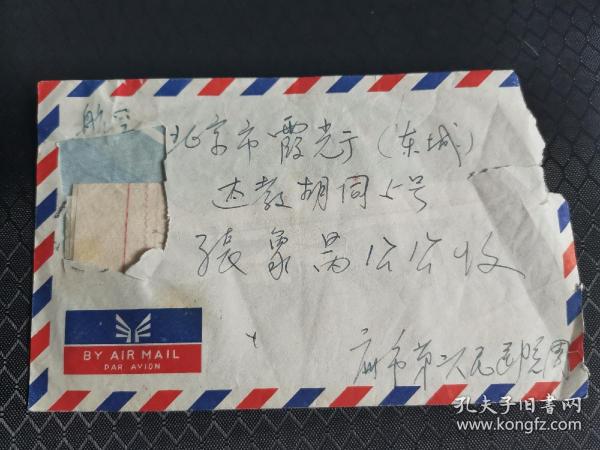 航空
北京市霞光于(东城)
达教胡同5号
張象昺公公收
广州市第六人民医院周
BY AIR MAIL
PAR AVION
孔夫子旧书网
www.kongfz.com